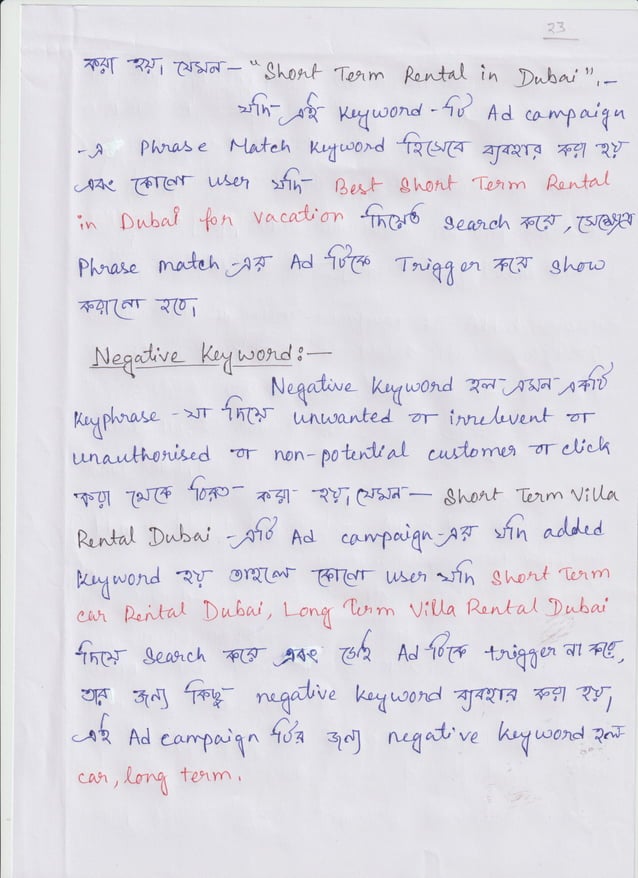 23
করা হয়, যেমন - "Short Term Rental in Dubai". -
যদি এই Keyword - টি Ad campaign
-এ Phrase Match Keyword হিসেবে ব্যবহার করা হয়
এবং কোনো user যদি Best Short Term Rental
in Dubai for vacation দিয়েও search করে, সেক্ষেত্রে
Phrase match -এর Ad টিকে Trigger করে show
করানো হবে,
Negative Keyword:—
Negative Keyword হল এমন একটি
Keyphrase - যা দিয়ে unwanted or irrelevent or
unauthorised or non-potential customer or click
করা থেকে বিরত করা হয়, যেমন — Short Term Villa
Rental Dubai - এটি Ad campaign -এর যদি added
Keyword হয় তাহলে কোনো user যদি Short Term
car Rental Dubai, Long Term Villa Rental Dubai
দিয়ে search করে এবং সেই Ad টিকে trigger না করে,
তার জন্য কিছু negative keyword ব্যবহার করা হয়,
এই Ad campaign টির জন্য negative keyword হল
car, long term.